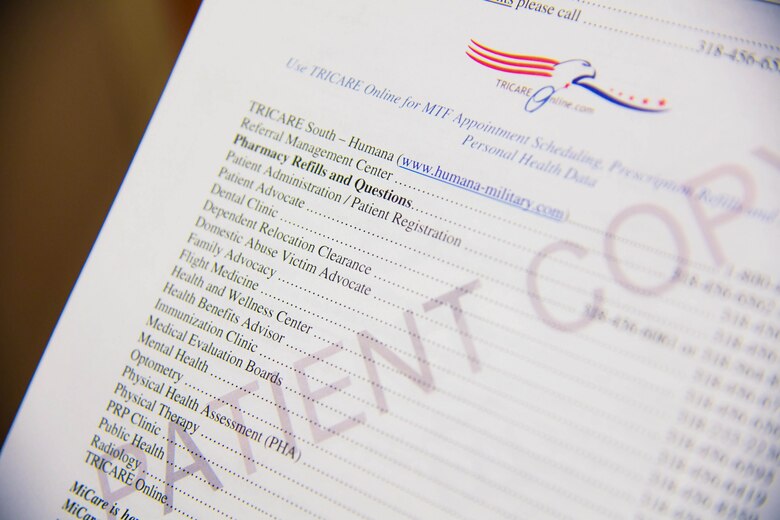 please call
318-456-65
TRICARE
Online.com
Use TRICARE Online for MTF Appointment Scheduling, Prescription Refills and
Personal Health Data
TRICARE South – Humana (www.humana-military.com)
Referral Management Center
Pharmacy Refills and Questions
Patient Administration / Patient Registration
Patient Advocate
Dental Clinic
Dependent Relocation Clearance
Domestic Abuse Victim Advocate
Family Advocacy
Flight Medicine
Health and Wellness Center
Health Benefits Advisor
Immunization Clinic
Medical Evaluation Boards
Mental Health
Optometry
Physical Health Assessment (PHA)
Physical Therapy
PRP Clinic
Public Health
Radiology
TRICARE Online
MiCare is
MiCar
PATIENT COPY